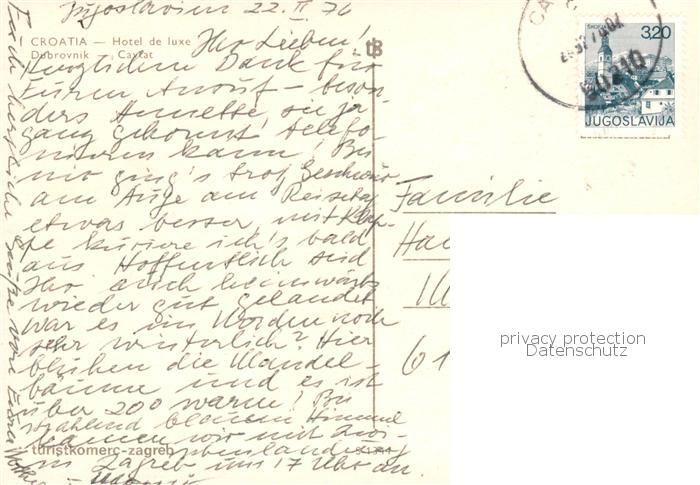 Jugoslavien 22. II 76
CROATIA — Hotel de luxe
Dubrovnik Cavtat
Ihr Lieben!
Herzlichen Dank für
Euren Anruf - beson-
ders Annette, die ja
ganz gekonnt telefo-
nieren kann! Bei
mir ging's trotz Geschwür
am Auge am Reisetag
etwas besser, mit Klap-
pe kuriere ich's bald
aus. Hoffentlich seid
Ihr auch heimwärts
wieder gut gelandet
war es im Norden noch
sehr winterlich? Hier
blühen die Mandel-
bäume und es ist
über 20° warm! Bei
strahlend blauem Himmel
kamen wir mit Zwi-
schenlandung
turistkomerc-zagreb
in Zagreb um 17 Uhr an.
Euch herzliche Grüße von Eurer
ŠKOFJA
3,20
JUGOSLAVIJA
50210
Familie
Ha
61
privacy protection
Datenschutz